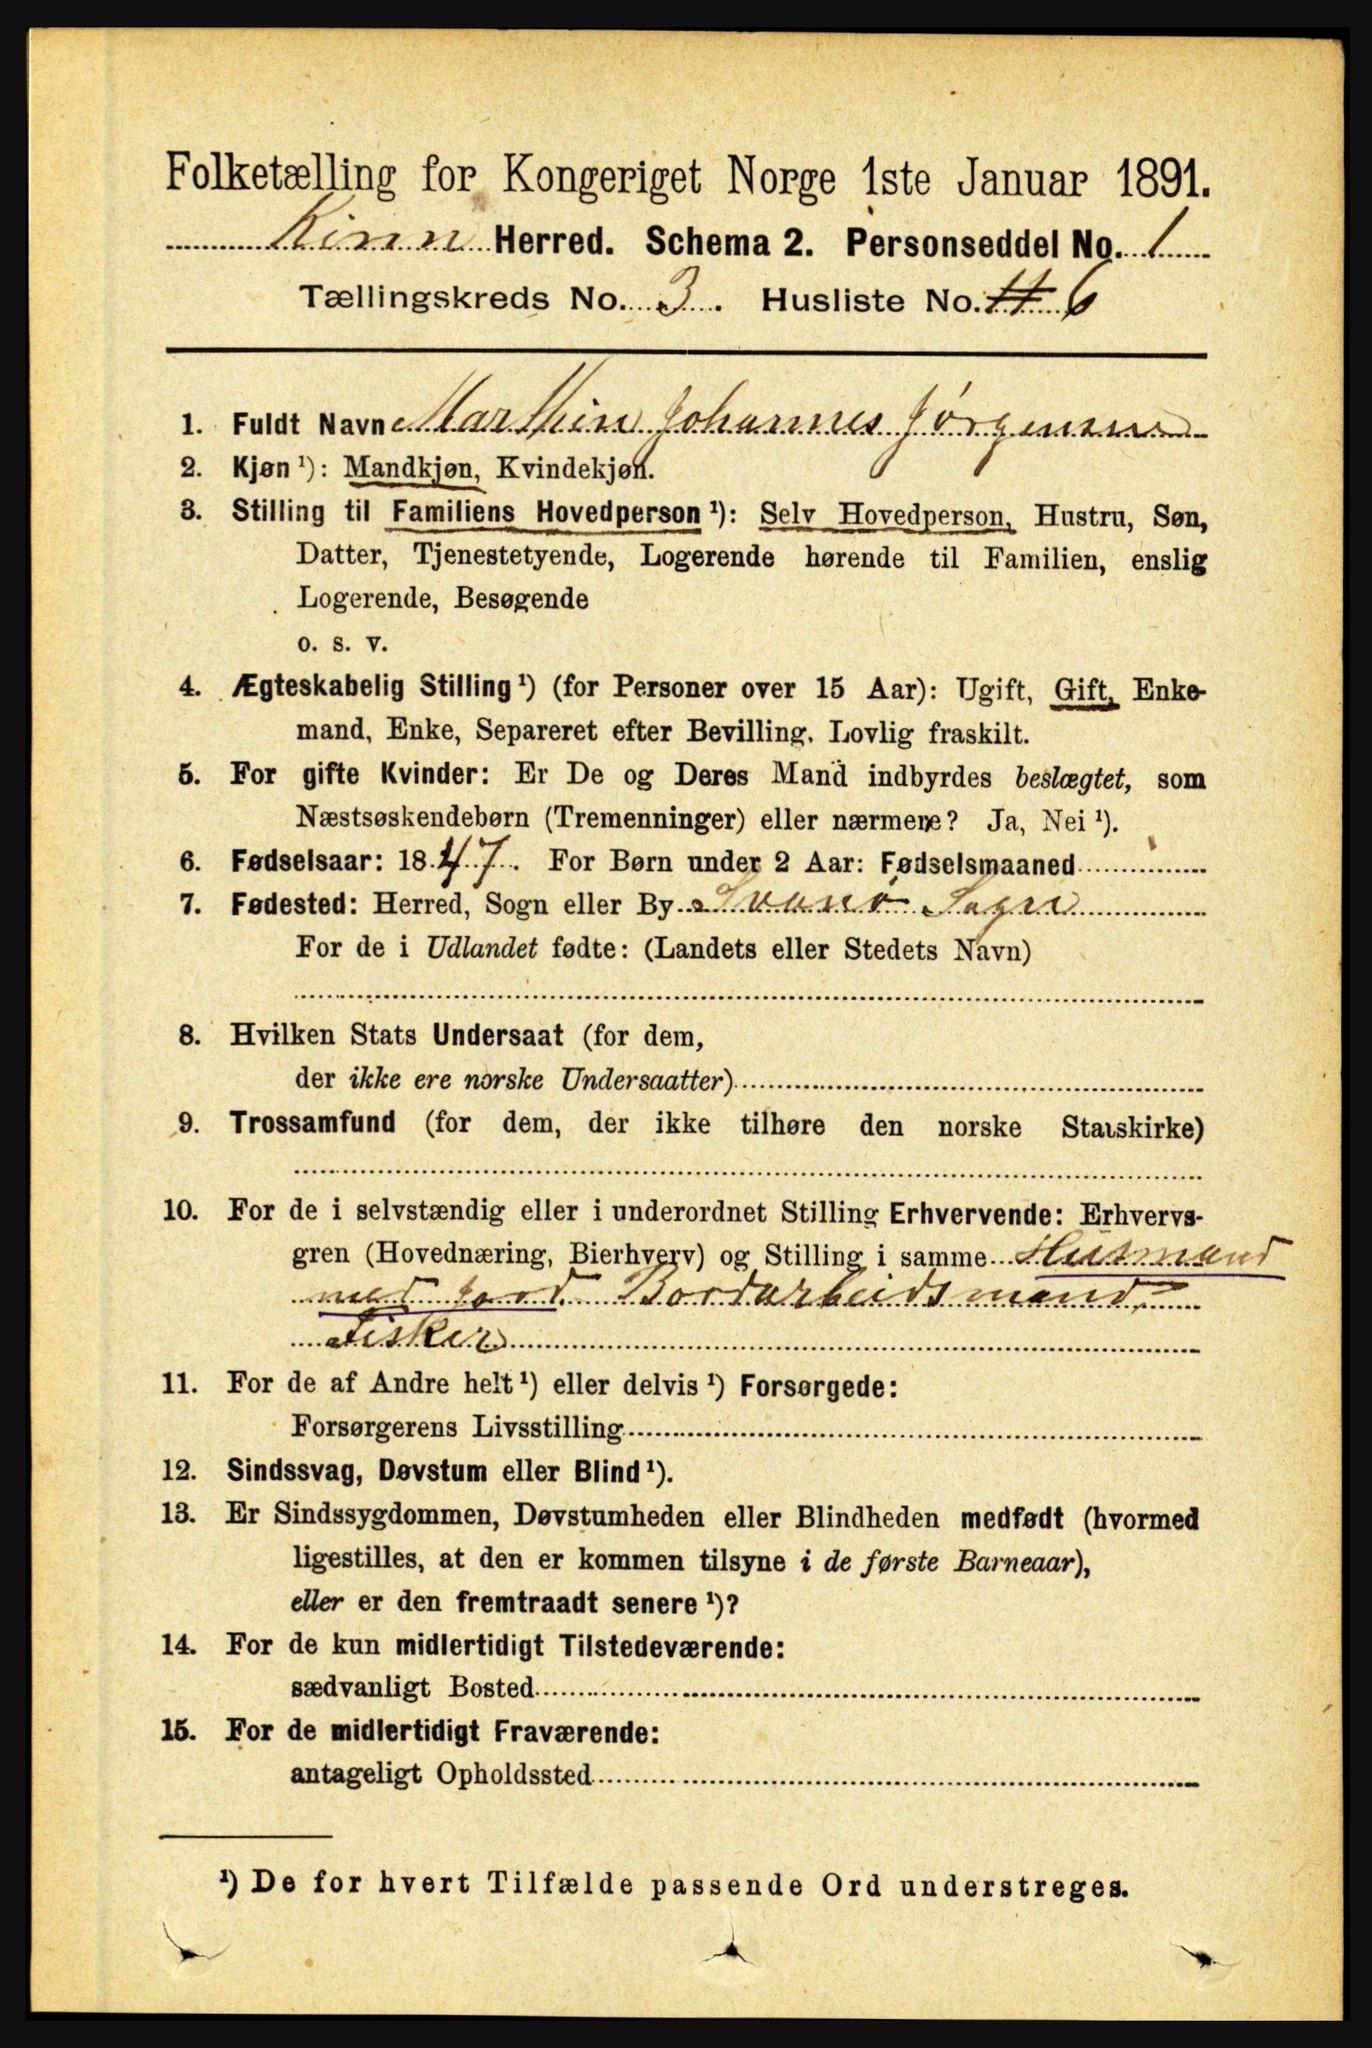 Folketælling for Kongeriget Norge 1ste Januar 1891.
Kinn Herred. Schema 2. Personseddel No. 1
Tællingskreds No. 3. Husliste No. 6
1. Fuldt Navn Marthin Johannes Jørgensen
2. Kjøn ¹): Mandkjøn, Kvindekjøn.
3. Stilling til Familiens Hovedperson ¹): Selv Hovedperson, Hustru, Søn,
Datter, Tjenestetyende, Logerende hørende til Familien, enslig
Logerende, Besøgende
o. s. v.
4. Ægteskabelig Stilling ¹) (for Personer over 15 Aar): Ugift, Gift, Enke-
mand, Enke, Separeret efter Bevilling, Lovlig fraskilt.
5. For gifte Kvinder: Er De og Deres Mand indbyrdes beslægtet, som
Næstsøskendebørn (Tremenninger) eller nærmere? Ja, Nei ¹).
6. Fødselsaar: 1847. For Børn under 2 Aar: Fødselsmaaned
7. Fødested: Herred, Sogn eller By Svanø Sogn
For de i Udlandet fødte: (Landets eller Stedets Navn)
8. Hvilken Stats Undersaat (for dem,
der ikke ere norske Undersaatter)
9. Trossamfund (for dem, der ikke tilhøre den norske Statskirke)
10. For de i selvstændig eller i underordnet Stilling Erhvervende: Erhvervs-
gren (Hovednæring, Bierhverv) og Stilling i samme Husmand
med Jord. Bordarbeidsmand,
Fisker
11. For de af Andre helt ¹) eller delvis ¹) Forsørgede:
Forsørgerens Livsstilling
12. Sindssvag, Døvstum eller Blind ¹).
13. Er Sindssygdommen, Døvstumheden eller Blindheden medfødt (hvormed
ligestilles, at den er kommen tilsyne i de første Barneaar),
eller er den fremtraadt senere ¹)?
14. For de kun midlertidigt Tilstedeværende:
sædvanligt Bosted
15. For de midlertidigt Fraværende:
antageligt Opholdssted
¹) De for hvert Tilfælde passende Ord understreges.